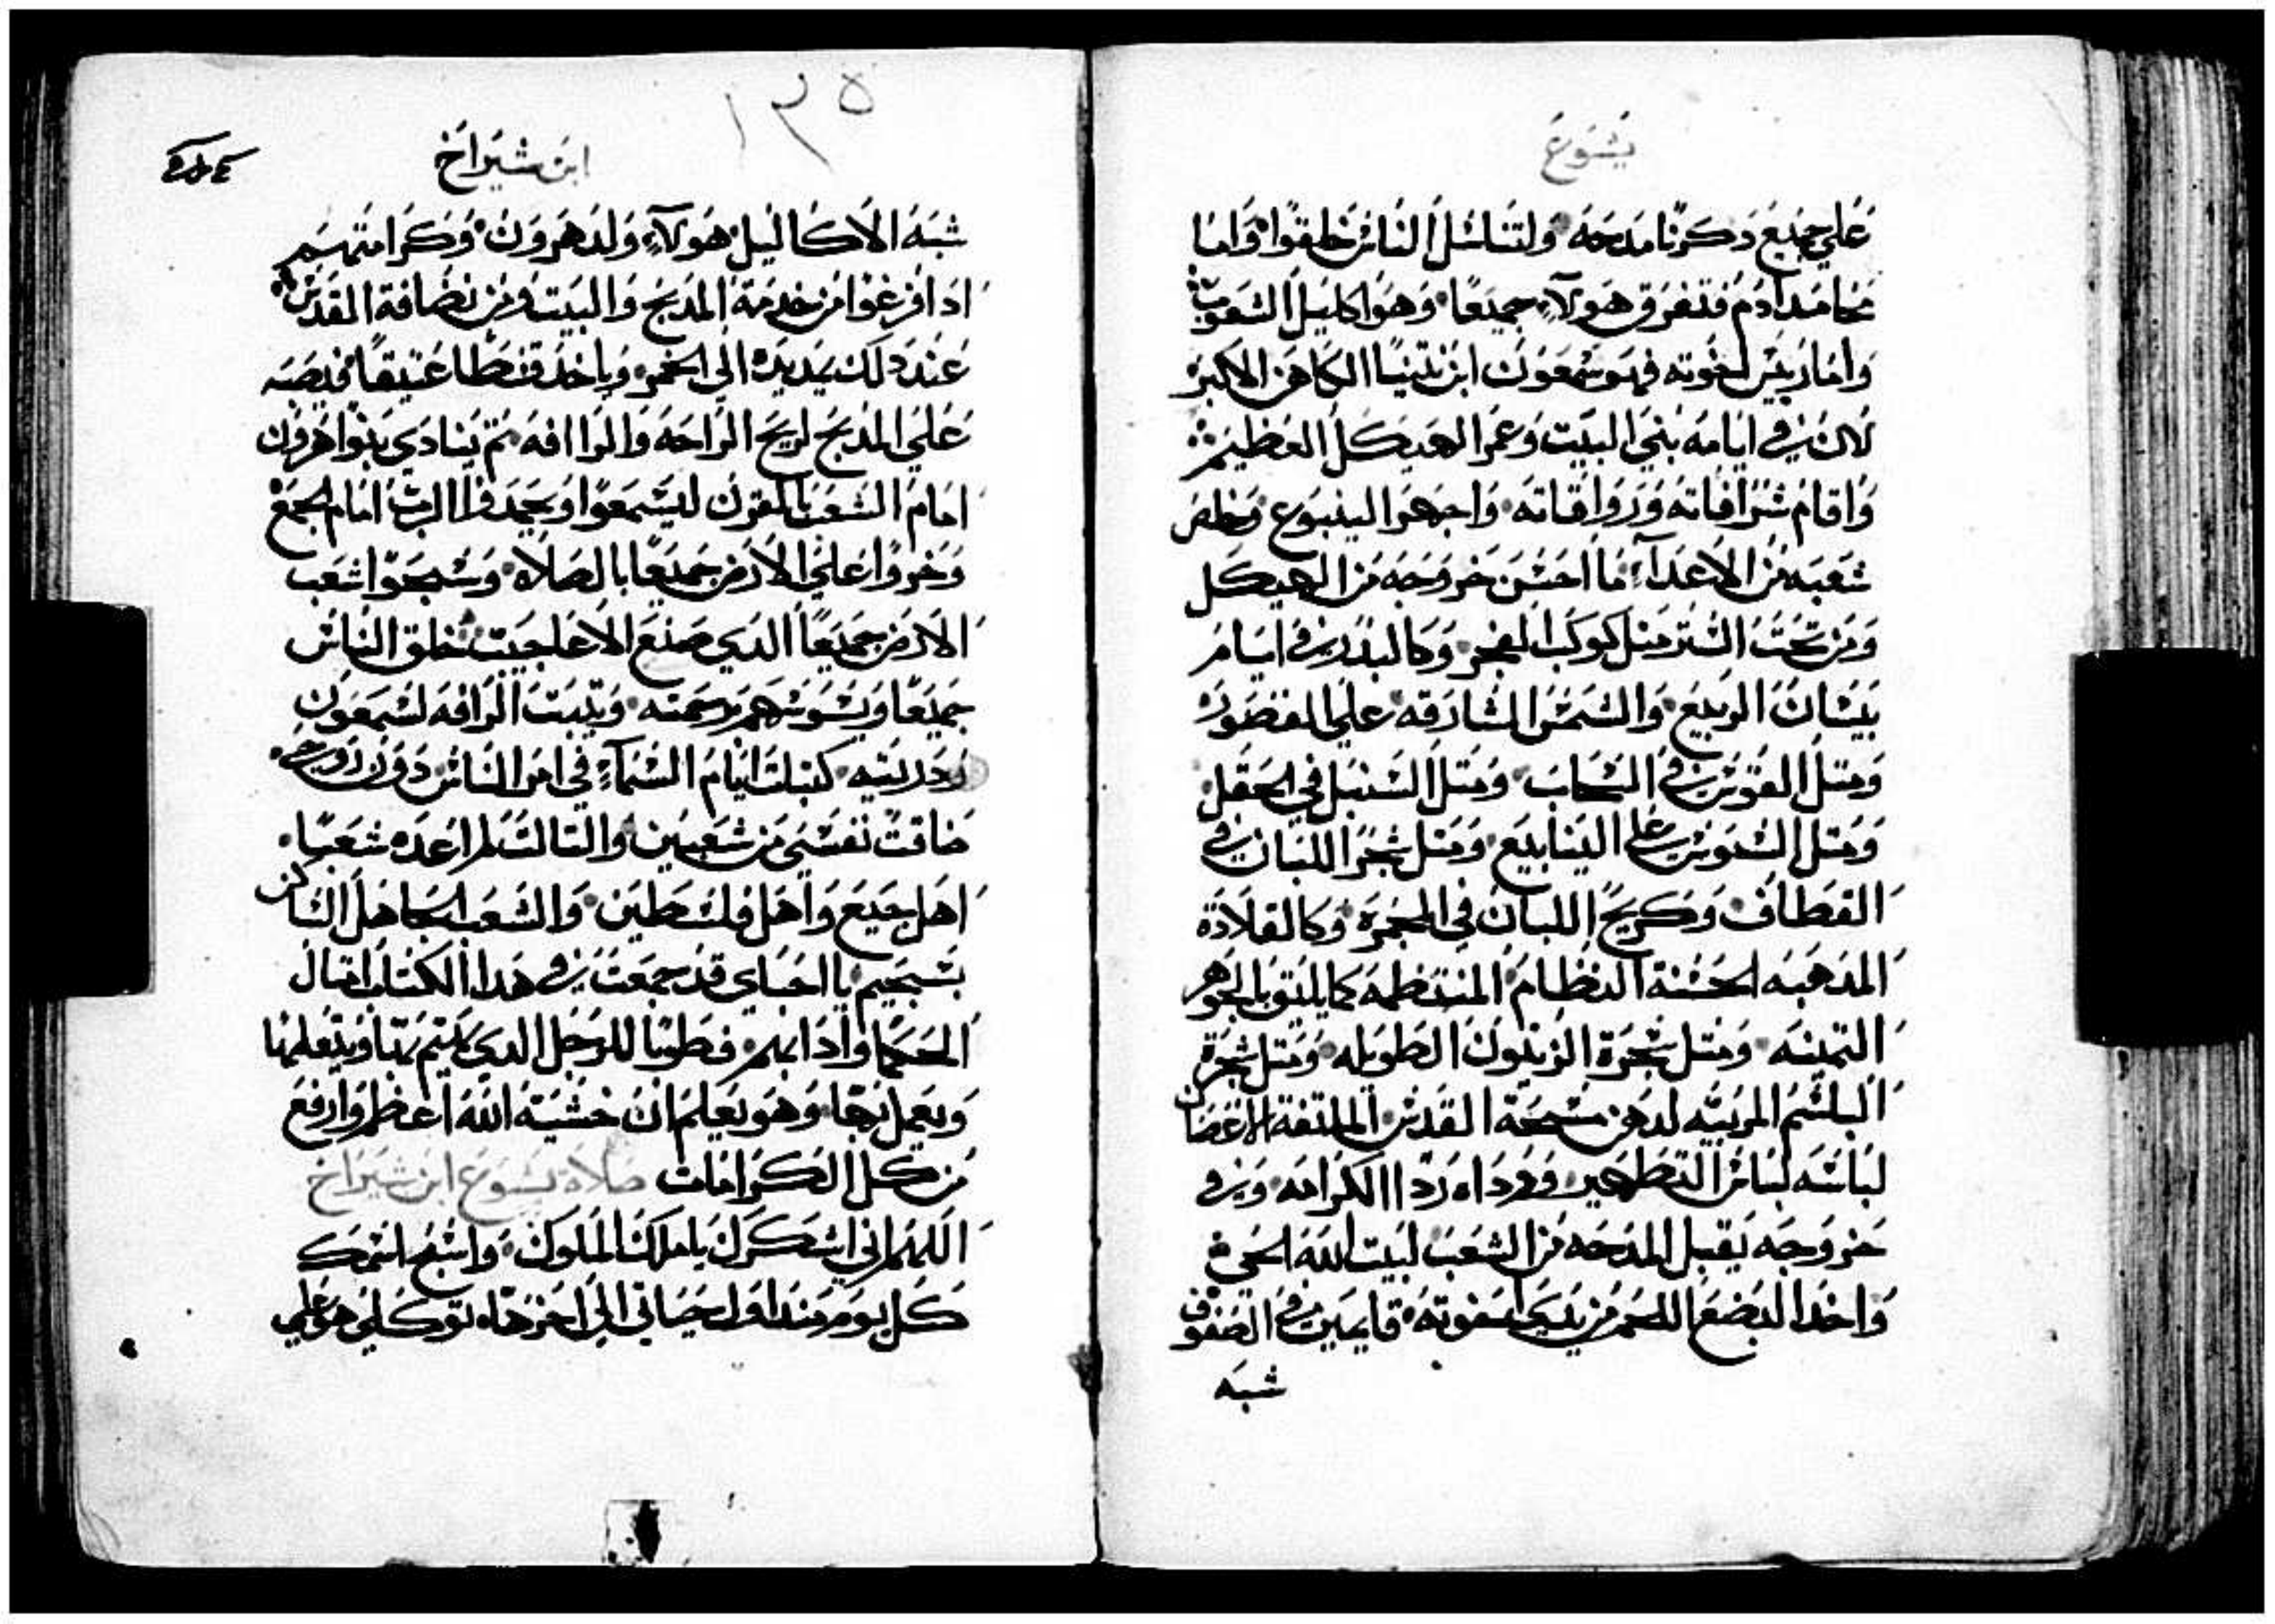 يشوع
علي جميع دكرنا مدحه ولتناسل الناس خلقوا واما
محامد ادم فتفرق هولآء جميعا وهو اكليل الشعوب
واما ريس اخوته فهو شمعون ابن نتنيا الكاهن الاكبر
لان في ايامه بني البيت وعمر الهيكل العظيم
واقام شرافاته ورواقاته واجهر الينبوع وخلص
شعبه من الاعدآء ما احسن خروجه من الهيكل
ومن تحت الستر متل كوكب الفجر وكالبدر في ايام
نيسان الربيع والشمس الشارقه علي القصور
ومتل القوس في السحاب ومتل السنبل في الحقل
ومتل السوس علي الينابيع ومتل شجر اللبان في
القطاف وكريح اللبان في المجمره وكالقلادة
المدهبه الحسنة النظام المنتظمه كما يليق بالجوهر
التمينه ومتل شجرة الزيتون الطويله ومتل شجرة
البلسم المربيه لدهن مسحة القدس الملتفة الاغصان
لباسه لباس التطهير ورداه ردا الكرامه وفي
خروجه يقبل المدحه من الشعب لبيت الله الحي
واخد البضع اللحم من يدي اخوته قايمين في الصفوف
شبه
١٣٥
ابن شيراخ
شبه الاكاليل هولآء ولد هرون وكرامتهم
ادا فرغوا من خدمة المدبح والبيت ومن نضافة القدس
عند دلك يمد يده الي الخمر وياخد قسطا عتيقا فيصبه
علي المدبح لريح الراحه والراافه تم ينادي بنوا هرون
امام الشعب بالقرن ليسمعوا ويحمدوا الرب امام الجمع
وخروا علي الارض جميعا بالصلاه وسبحوا شعب
الارض جميعا الدي صنع الاعاجيب خلق الناس
جميعا ويسوسهم برحمته ويتبت الرافه لشمعون
ودريته كتبات ايام السمآء في امر الناس دون روحي
ضاقت نفسي من شعبين والتالت لم اعده شعبا
اهل جميع واهل فلسطين والشعب الجاهل الساكن
بسجيم يا احباي قد جمعت في هدا الكتاب امتال
الحكما وادابهم فطوبا للرجل الدي يهتم بها ويتعلمها
ويعمل بها وهو يعلم ان خشية الله اعظم وارفع
من كل الكرامات صلاة يشوع ابن شيراخ
اللهم اني اشكرك يا ملك الملوك واسبح اسمك
كل يوم مند اول حياتي الي اخرها توكلي هو علي